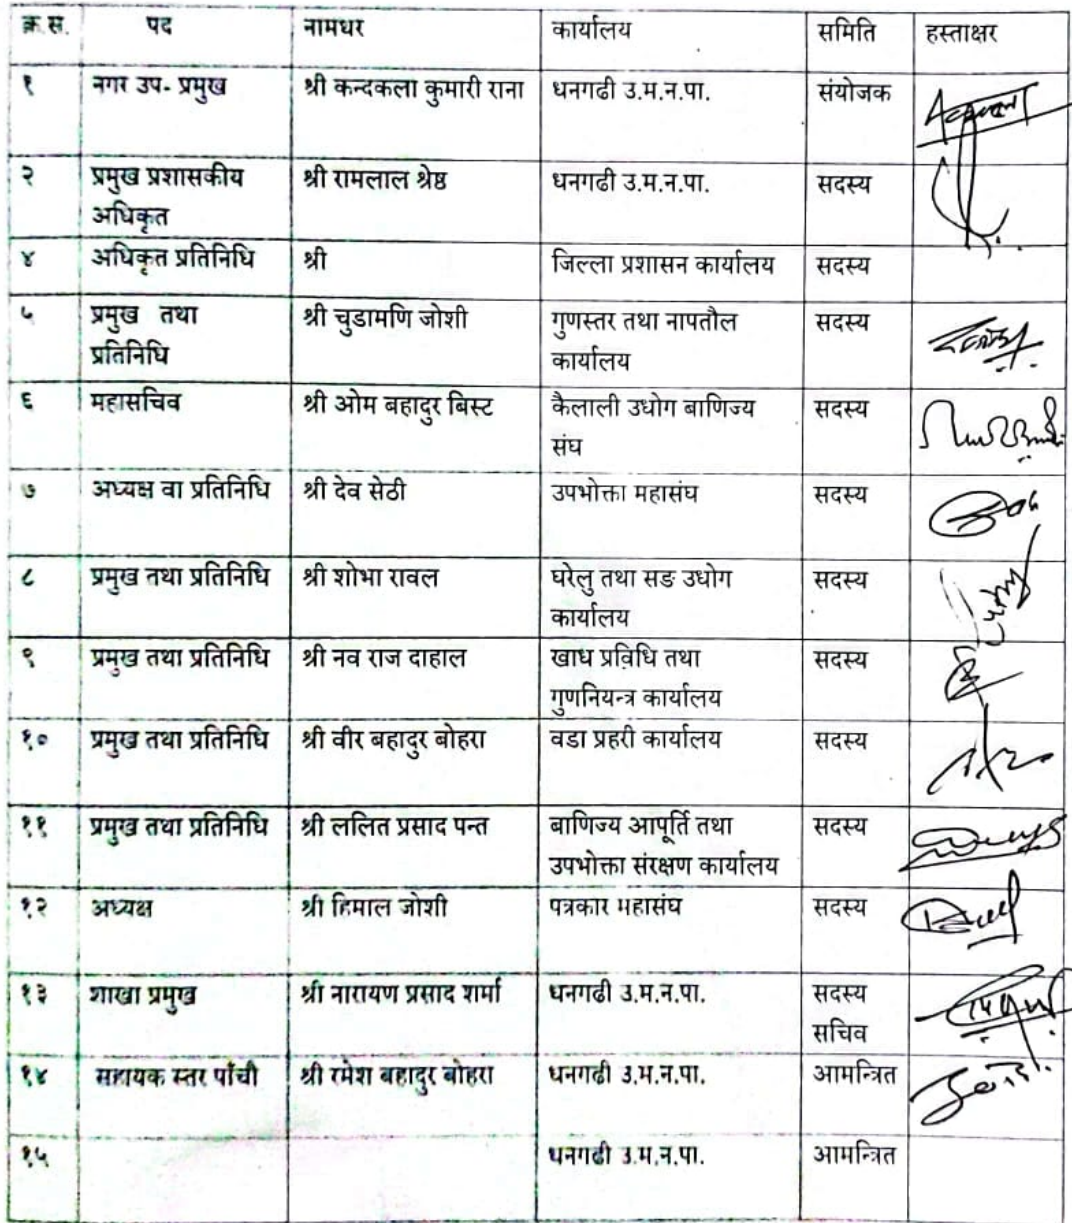 क्र.स. पद नामथर कार्यालय समिति हस्ताक्षर
१ नगर उप- प्रमुख श्री कन्दकला कुमारी राना धनगढी उ.म.न.पा. संयोजक
२ प्रमुख प्रशासकीय श्री रामलाल श्रेष्ठ धनगढी उ.म.न.पा. सदस्य
अधिकृत
४ अधिकृत प्रतिनिधि श्री जिल्ला प्रशासन कार्यालय सदस्य
५ प्रमुख तथा श्री चुडामणि जोशी गुणस्तर तथा नापतौल सदस्य
प्रतिनिधि कार्यालय
६ महासचिव श्री ओम बहादुर बिस्ट कैलाली उधोग बाणिज्य सदस्य
संघ
७ अध्यक्ष वा प्रतिनिधि श्री देव सेठी उपभोक्ता महासंघ सदस्य
८ प्रमुख तथा प्रतिनिधि श्री शोभा रावल घरेलु तथा सङ उधोग सदस्य
कार्यालय
९ प्रमुख तथा प्रतिनिधि श्री नव राज दाहाल खाध प्रविधि तथा सदस्य
गुणनियन्त्र कार्यालय
१० प्रमुख तथा प्रतिनिधि श्री वीर बहादुर बोहरा वडा प्रहरी कार्यालय सदस्य
११ प्रमुख तथा प्रतिनिधि श्री ललित प्रसाद पन्त बाणिज्य आपूर्ति तथा सदस्य
उपभोक्ता संरक्षण कार्यालय
१२ अध्यक्ष श्री हिमाल जोशी पत्रकार महासंघ सदस्य
१३ शाखा प्रमुख श्री नारायण प्रसाद शर्मा धनगढी उ.म.न.पा. सदस्य
सचिव
१४ सहायक स्तर पाँचौ श्री रमेश बहादुर बोहरा धनगढी उ.म.न.पा. आमन्त्रित
१५ धनगढी उ.म.न.पा. आमन्त्रित